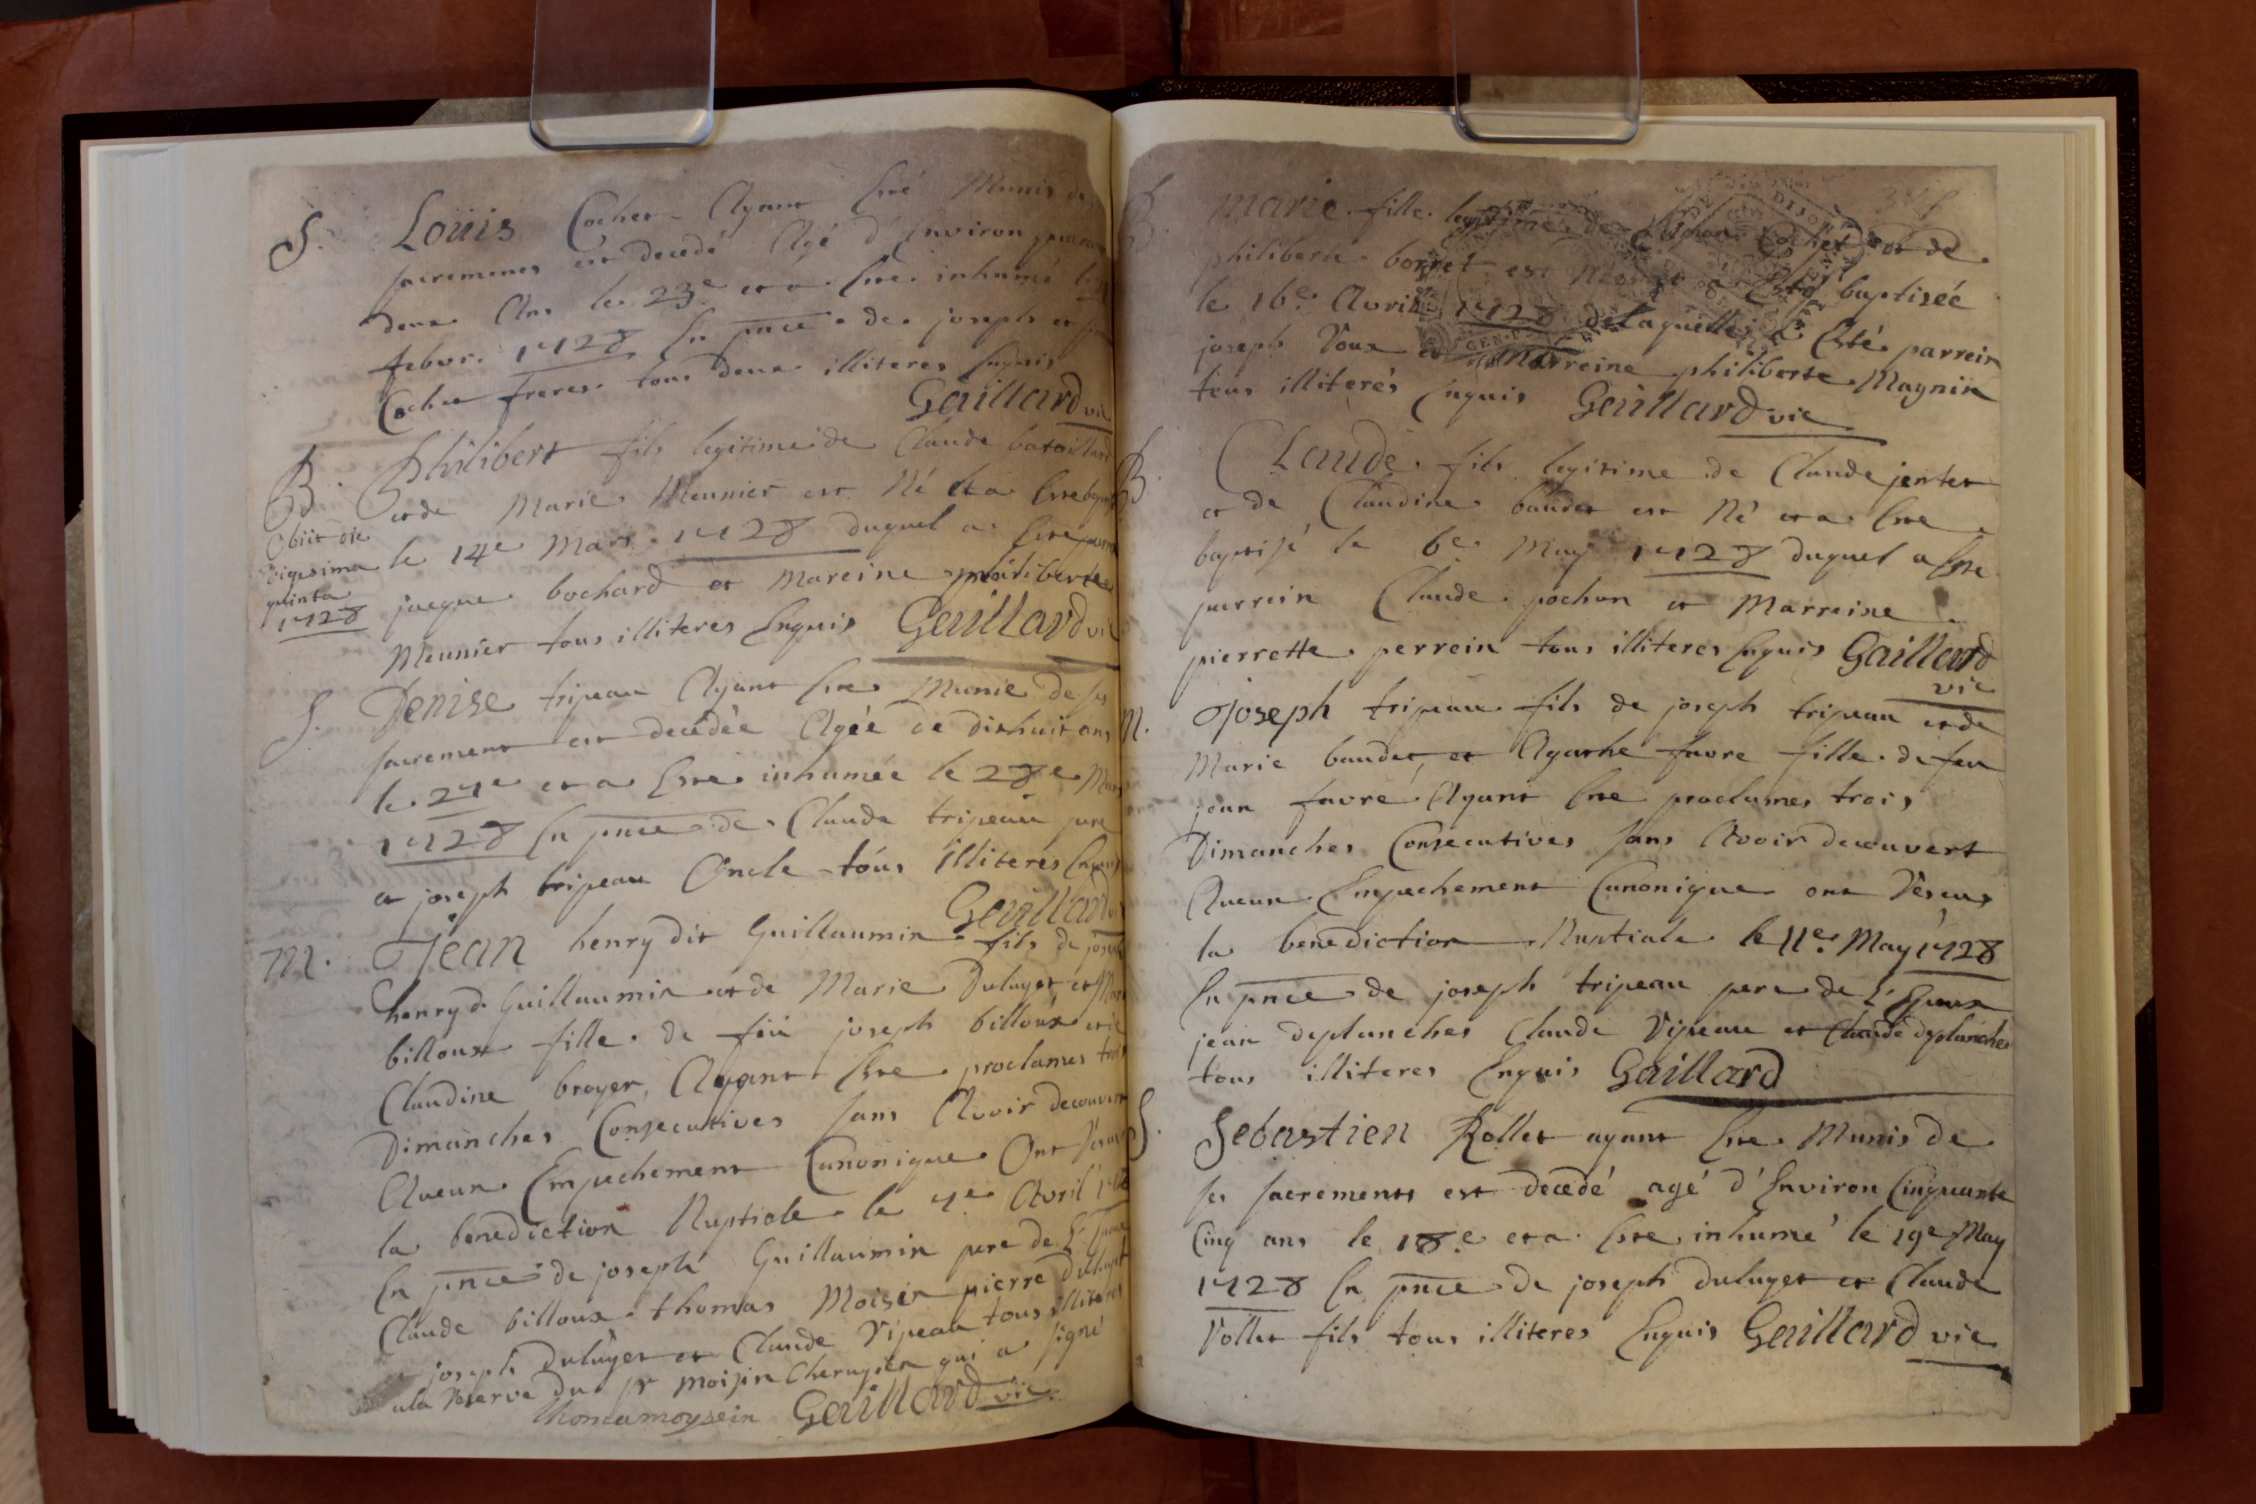 S. Loüis Cochet Ayant Esté Munis de
sacremens est decedé Agé d'Environ
deux Ans le 23e et a Esté inhumé le
febvr. 1728 En pnce de joseph et
Cochet freres tous deux illiteres Enquis
Gaillard vic
B. Philibert fils legitime de Claude bataillard
et de Marie Meunier est Né et a Esté
le 14e Mars 1728 duquel a Esté
jacque bochard et Mareine philiberte
Meunier tous illiteres Enquis Gaillard vic
Obiit die
vigesima
quinta
1728
S. Denise tripeau Ayant Esté Munie de ses
sacrement est decedée Agée de dixhuit ans
le 27e et a Esté inhumée le 28e
1728 En pnce de Claude tripeau pere
et joseph tripeau Oncle tous illiterés Enquis
Gaillard
M. Jean henry dit Guillaumin fils de joseph
henry d. Guillaumin et de Marie Duluyet et
billoux fille de feü joseph billoux et de
Claudine broyer, Ayant Esté proclames trois
Dimanches Consecutives sans Avoir decouvert
Aucun Empechement Canonique Ont
la benediction Nuptiale le 7e Avril
En pnce de joseph Guillaumin pere de
Claude billoux thomas Moisin pierre Duluyet
joseph Duluyet et Claude Vipeau tous illiteres
a la Reserve du sr moisin Cherugien qui a signé
thoma moysein Gaillard vic
B. Marie fille legitime de Cochet et de
philiberte borret est a Esté baptisée
le 16e Avril 1728 de Laquelle a Esté parrein
joseph Voux et Marreine philiberte Magnin
tous illiterés Enquis Gaillard vic
B. Claude fils legitime de Claude jentet
et de Claudine baudet est Né et a Esté
baptisé le 6e May 1728 duquel a Esté
parrein Claude pochon et Marreine
pierrette perrein tous illiteres Enquis Gaillard
vic
M. Joseph tripeau fils de joseph tripeau et de
Marie baudet, et Agathe favre fille de feu
jean favre Ayant Esté proclames trois
Dimanches Consecutives sans Avoir decouvert
Aucun Empechement Canonique ont Réceus
la benediction Nuptiale le 11e May 1728
En pnce de joseph tripeau pere de L'Epoux
jean deplanches Claude Vipeau et Claude deplanches
tous illiteres Enquis Gaillard
S. Sebastien Rollet ayant Esté Munis de
ses sacrements est decedé agé d'Environ Cinquante
Cinq ans le 18e et a Esté inhumé le 19e May
1728 En pnce de joseph duluyet et Claude
Rollet fils tous illiteres Enquis Gaillard vic